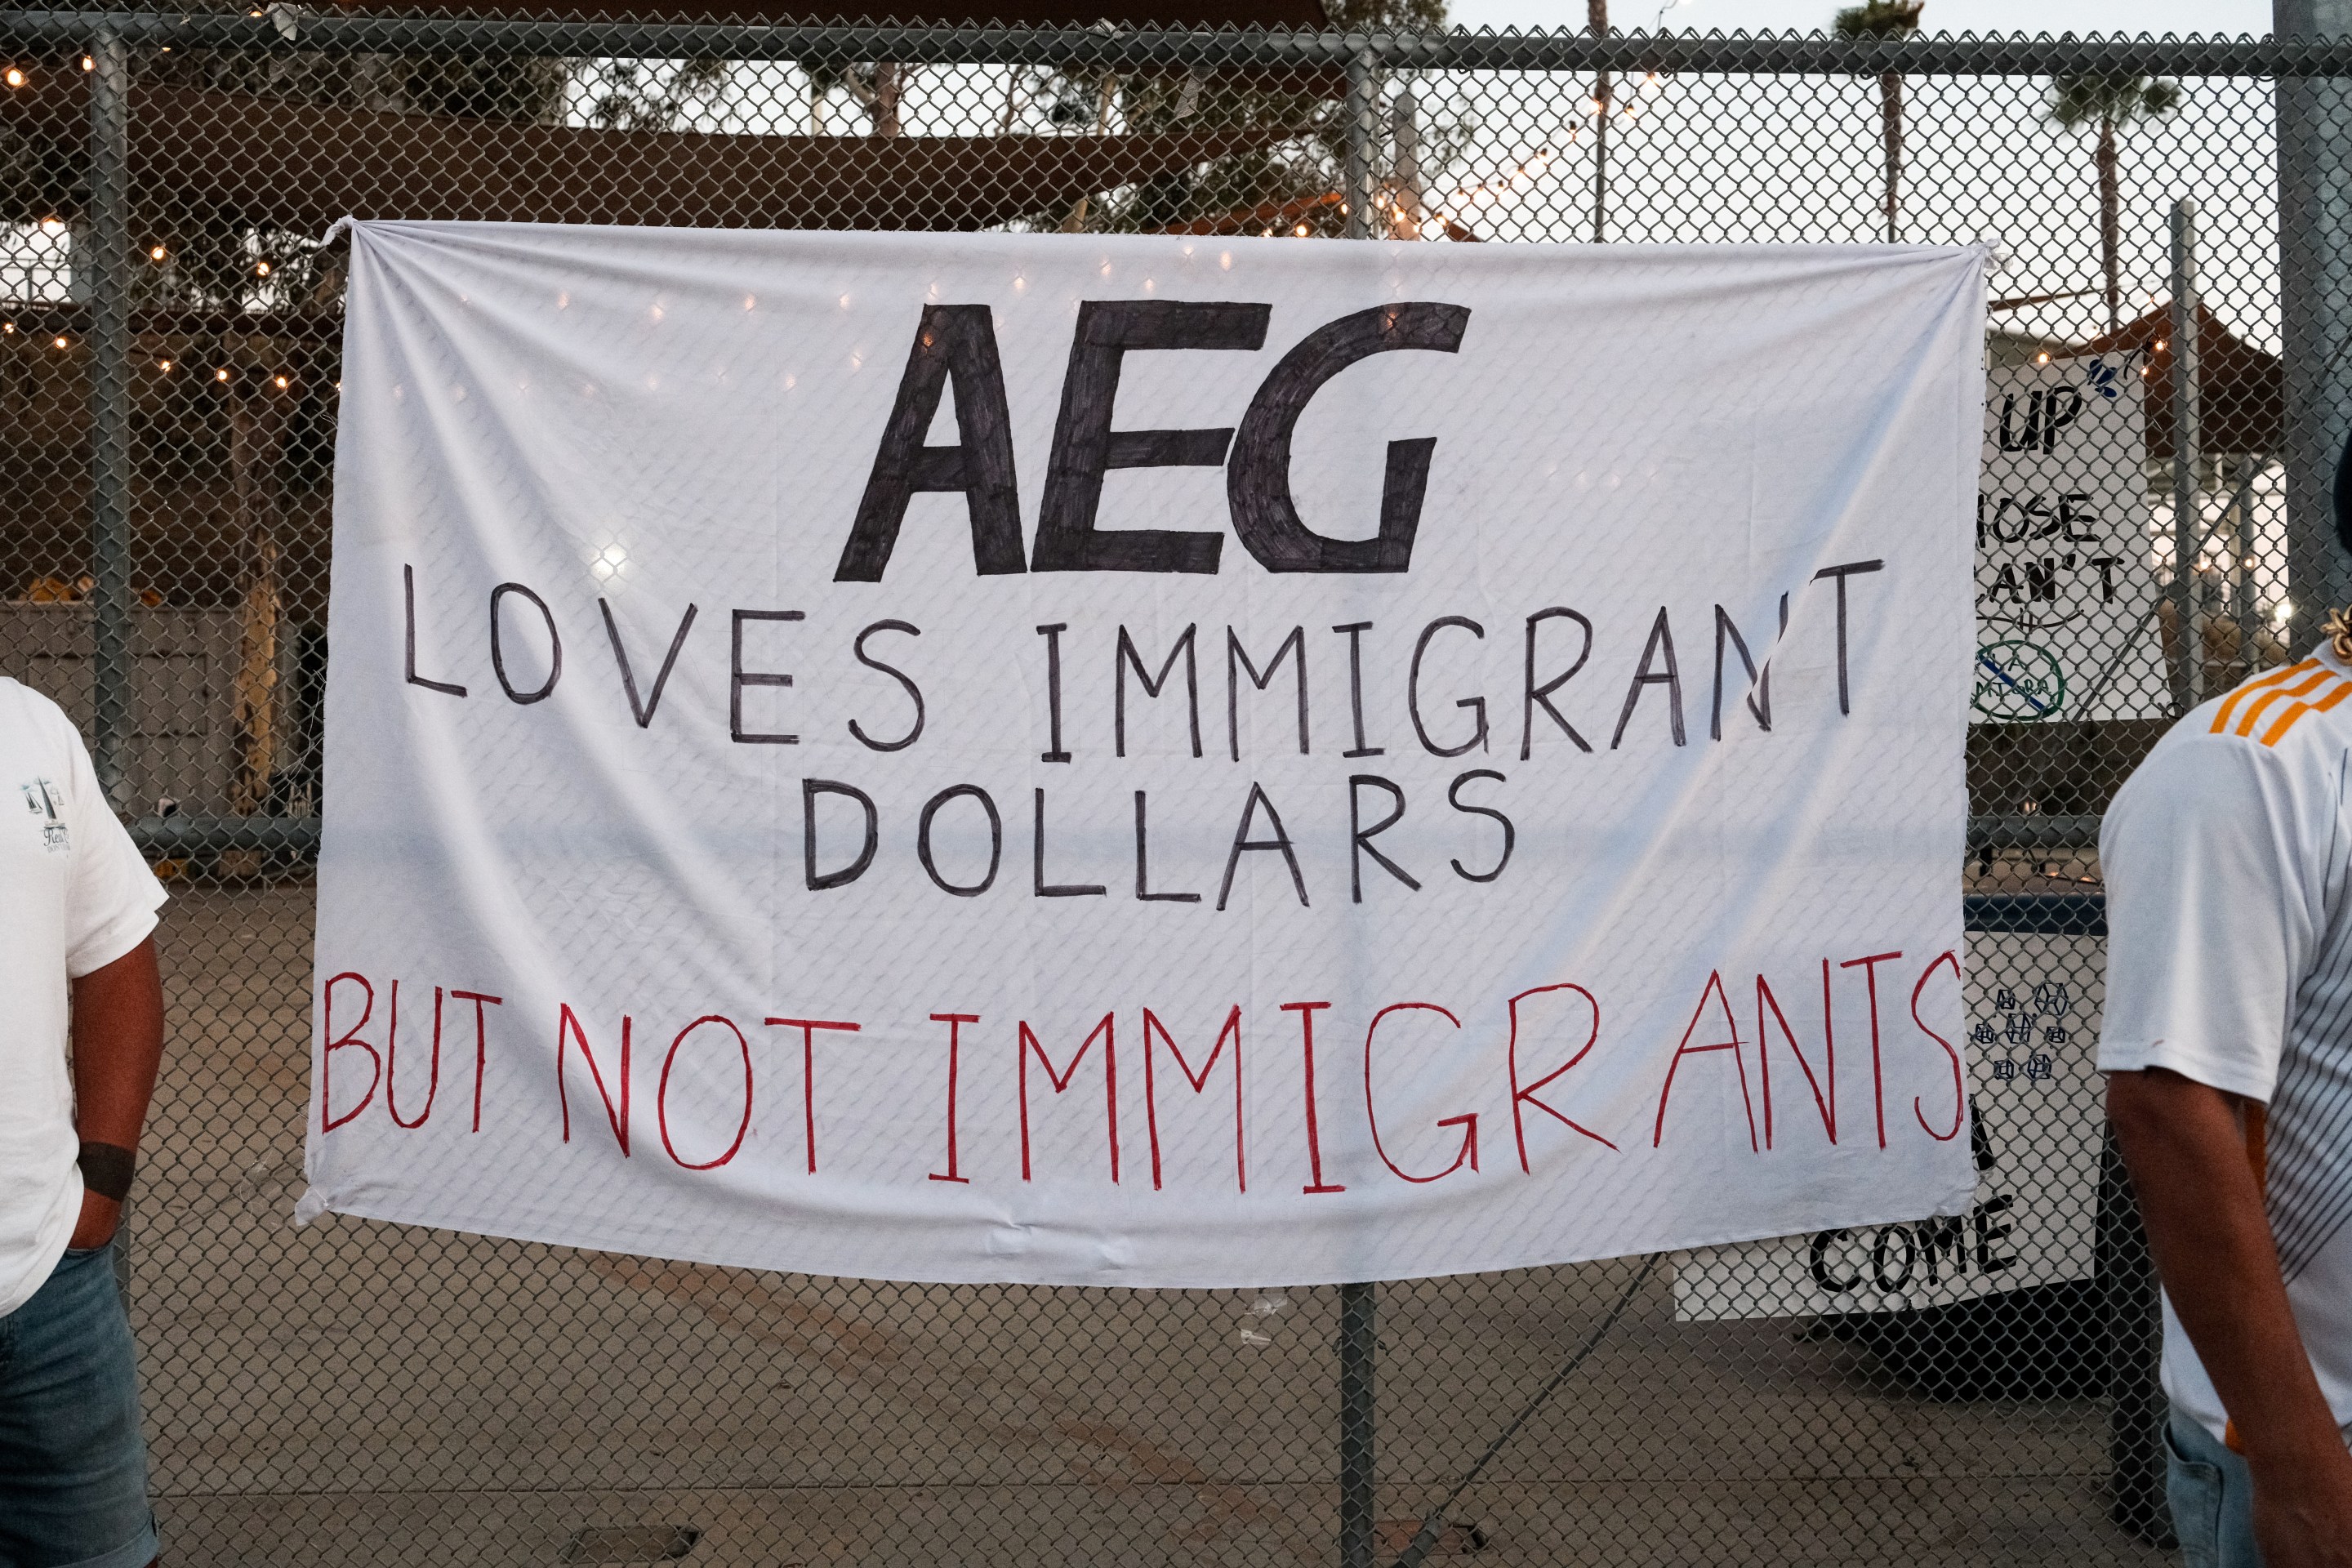 AEG
LOVES IMMIGRANT
DOLLARS
BUT NOT IMMIGRANTS
UP
COME